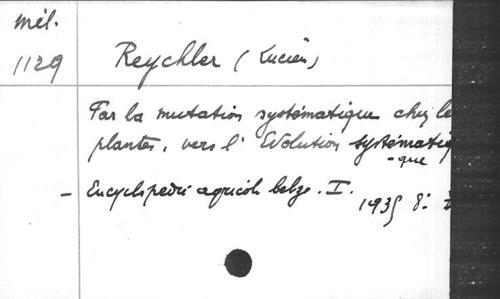 Mél.
1129
Reychler (Lucien)
Par la mutation systématique chez le
plantes, vers l' Evolution systématiq
-que
- Encyclopédie agricole belge. I.
1935 8: